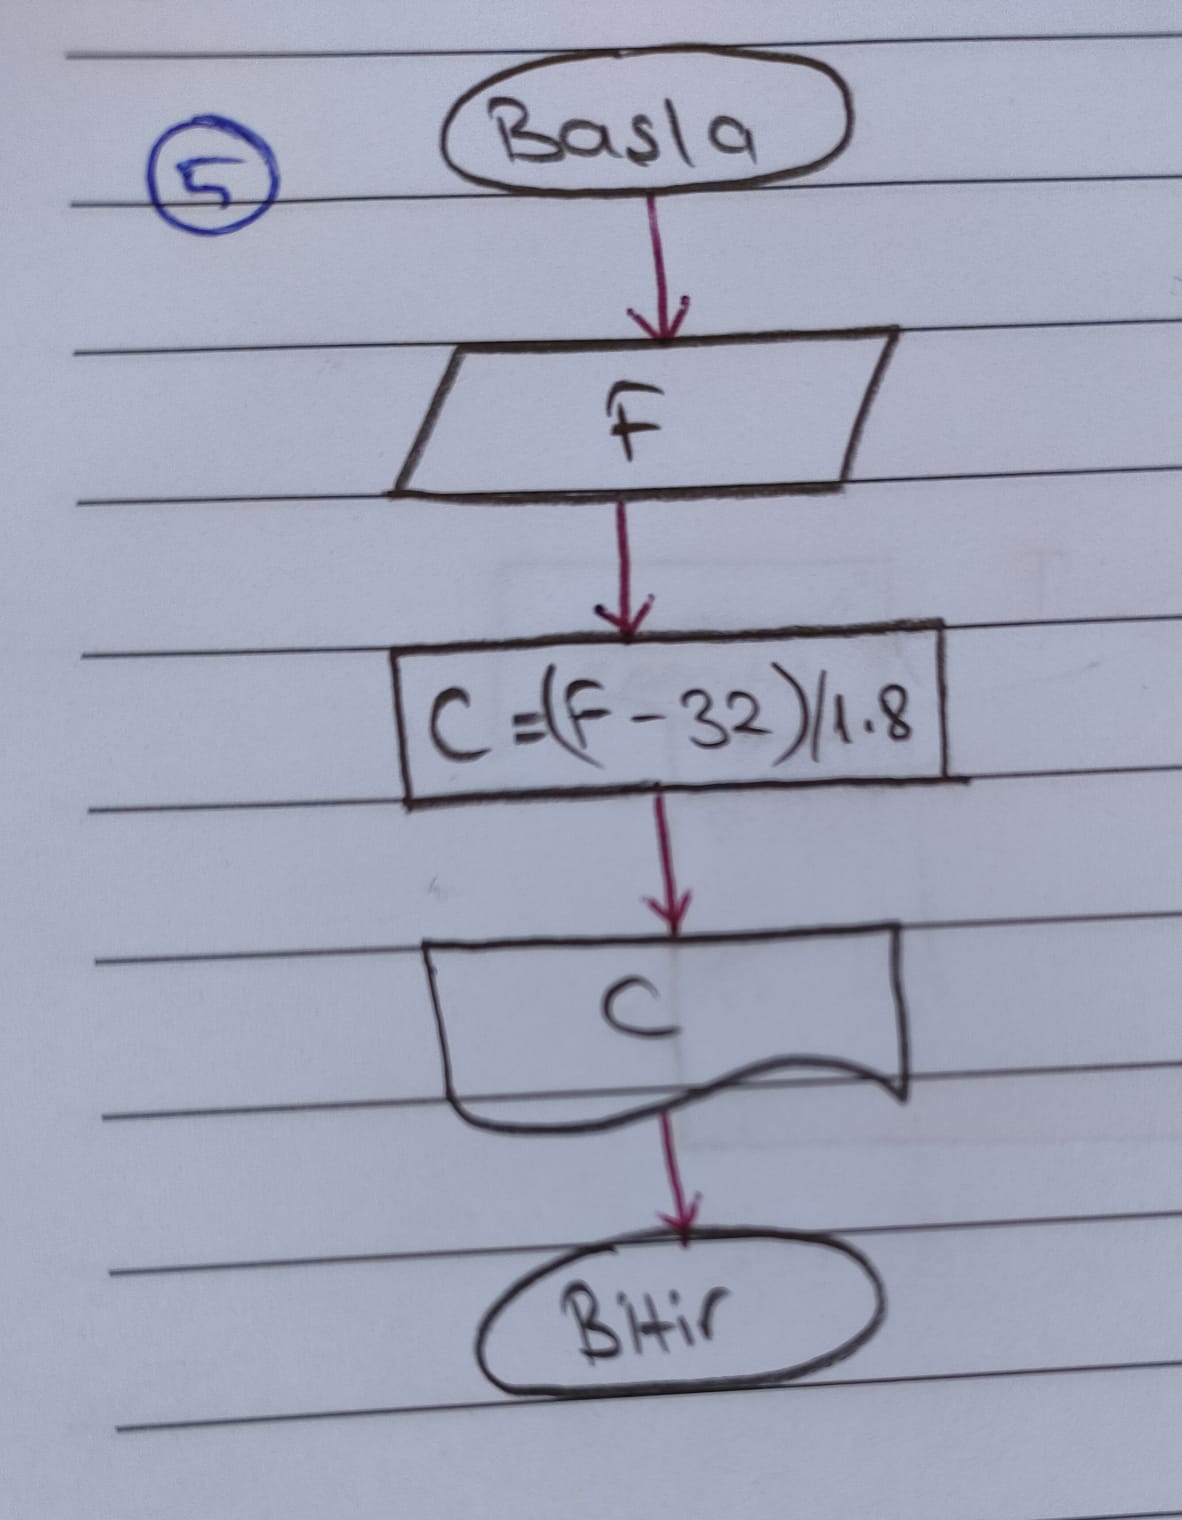 5
Basla
F
C=(F-32)/1.8
C
Bitir